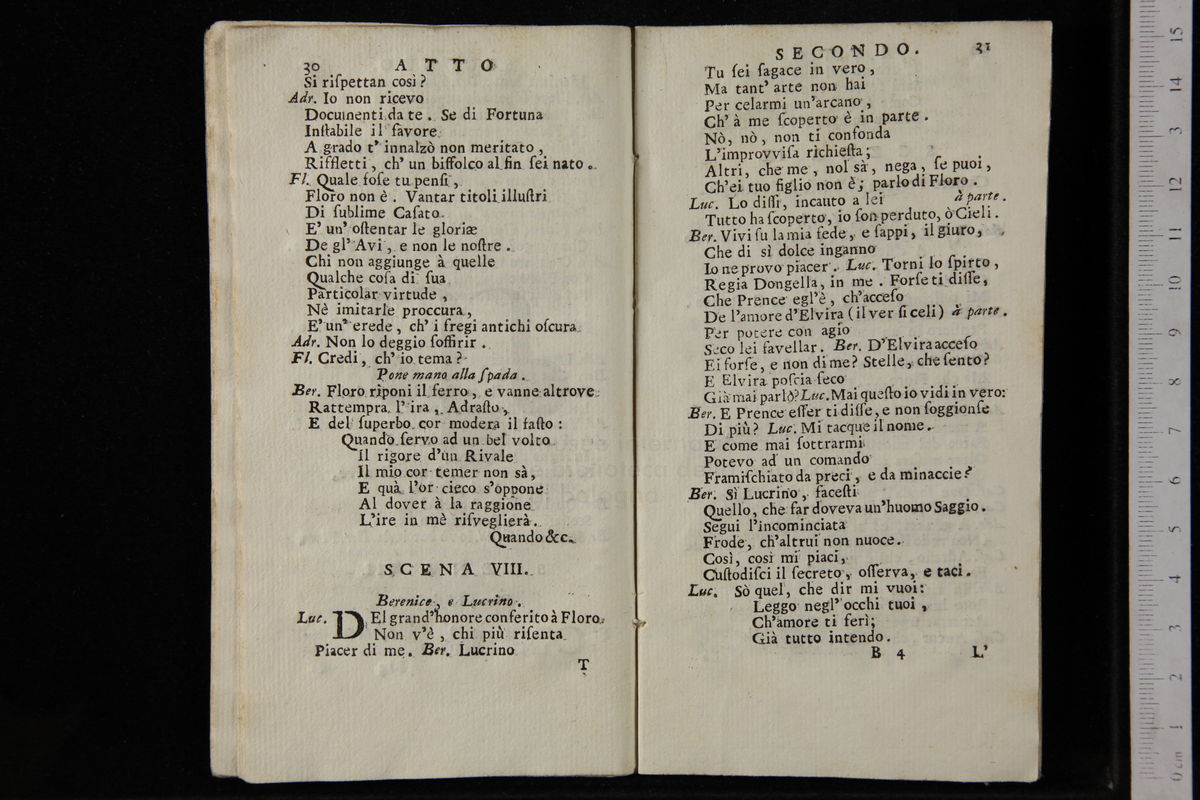 30 ATTO
Si riſpettan così?
Adr. Io non ricevo
Documenti da te. Se di Fortuna
Inſtabile il favore
A grado t' innalzò non meritato,
Riffletti, ch' un biffolco al fin ſei nato.
Fl. Quale foſe tu penſi,
Floro non è. Vantar titoli illuſtri
Di ſublime Caſato
E' un' oſtentar le gloriæ
De gl' Avi, e non le noſtre.
Chi non aggiunge à quelle
Qualche coſa di ſua
Particolar virtude,
Nè imitarle proccura,
E' un' erede, ch' i fregi antichi oſcura.
Adr. Non lo deggio ſoffirir.
Fl. Credi, ch' io tema?
Pone mano alla ſpada.
Ber. Floro riponi il ferro, e vanne altrove
Rattempra l' ira, Adraſto,
E del ſuperbo cor modera il faſto:
Quando ſervo ad un bel volto
Il rigore d'un Rivale
Il mio cor temer non sà,
E quà l'or cieco s'oppone
Al dover à la raggione
L'ire in mè riſveglierà.
Quando &c.
SCENA VIII.
Berenice, e Lucrino.
Luc. DEl grand'honore conferito à Floro
Non v'è, chi più riſenta
Piacer di me. Ber. Lucrino
T
SECONDO. 31
Tu ſei ſagace in vero,
Ma tant' arte non hai
Per celarmi un'arcano,
Ch' à me ſcoperto è in parte.
Nò, nò, non ti confonda
L'improvviſa richieſta;
Altri, che me, nol sà, nega, ſe puoi,
Ch'ei tuo figlio non è; parlo di Floro.
Luc. Lo diſſi, incauto a lei à parte.
Tutto ha ſcoperto, io ſon perduto, ò Cieli.
Ber. Vivi ſu la mia fede, e ſappi, il giuro,
Che di sì dolce inganno
Io ne provo piacer. Luc. Torni lo ſpirto,
Regia Dongella, in me. Forſe ti diſſe,
Che Prence egl'è, ch'acceſo
De l'amore d'Elvira (il ver ſi celi) à parte.
Per potere con agio
Seco lei favellar. Ber. D'Elvira acceſo
Ei forſe, e non di me? Stelle, che ſento?
E Elvira poſcia ſeco
Già mai parlò? Luc. Mai queſto io vidi in vero:
Ber. E Prence eſſer ti diſſe, e non ſoggionſe
Di più? Luc. Mi tacque il nome.
E come mai ſottrarmi
Potevo ad un comando
Framiſchiato da preci, e da minaccie?
Ber. Sì Lucrino, faceſti
Quello, che far doveva un'huomo Saggio.
Segui l'incominciata
Frode, ch'altrui non nuoce.
Così, così mi piaci,
Cuſtodiſci il ſecreto, oſſerva, e taci.
Luc. Sò quel, che dir mi vuoi:
Leggo negl' occhi tuoi,
Ch'amore ti ferì;
Già tutto intendo.
B 4 L'